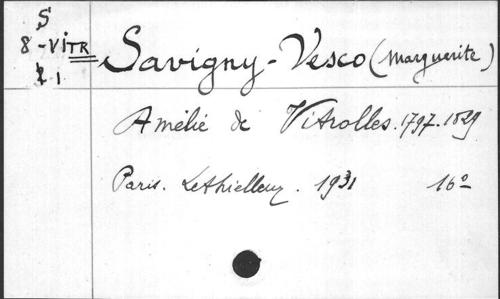 S
8 - VITR
1
Savigny-Vesco (Marguerite)
Amélie de Vitrolles. 1797-1829
Paris. Lethielleux. 1931 16º